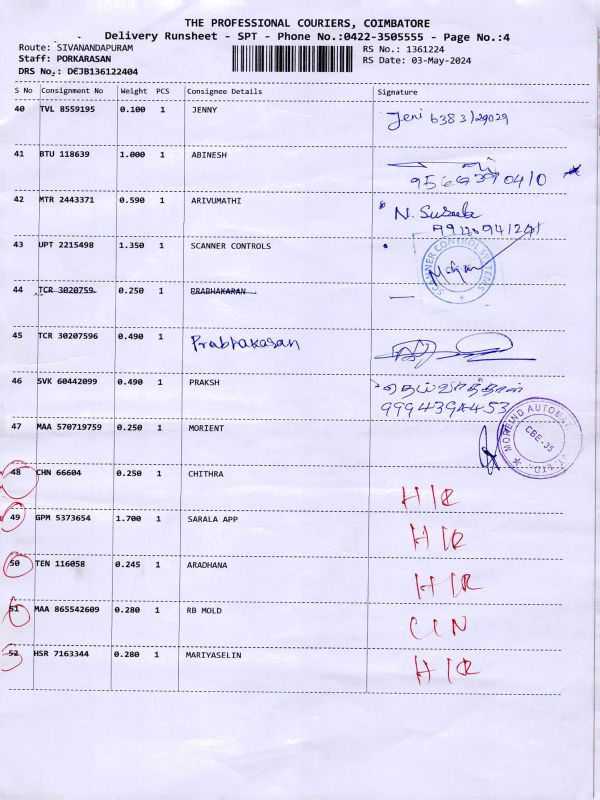 THE PROFESSIONAL COURIERS, COIMBATORE
Delivery Runsheet - SPT - Phone No.:0422-3505555 - Page No.:4
Route: SIVANANDAPURAM RS No.: 1361224
Staff: PORKARASAN RS Date: 03-May-2024
DRS No.: DEJB136122404
S No Consignment No Weight PCS Consignee Details Signature
40 TVL 8559195 0.100 1 JENNY
Jeni 6383129029
41 BTU 118639 1.000 1 ABINESH
42 MTR 2443371 0.590 1 ARIVUMATHI
N. Suseela
43 UPT 2215498 1.350 1 SCANNER CONTROLS
SCANNER CONTROL SYSTEMS
44 TCR 3020759 0.250 1 PRABHAKARAN
45 TCR 30207596 0.490 1 Prabhakasan
46 SVK 60442099 0.490 1 PRAKSH
47 MAA 570719759 0.250 1 MORIENT
MOREIND AUTOMAT
CBE-35
48 CHN 66604 0.250 1 CHITHRA
HIR
49 GPM 5373654 1.700 1 SARALA APP
HIR
50 TEN 116058 0.245 1 ARADHANA
HIR
51 MAA 865542609 0.280 1 RB MOLD
CIN
52 HSR 7163344 0.280 1 MARIYASELIN
HIR